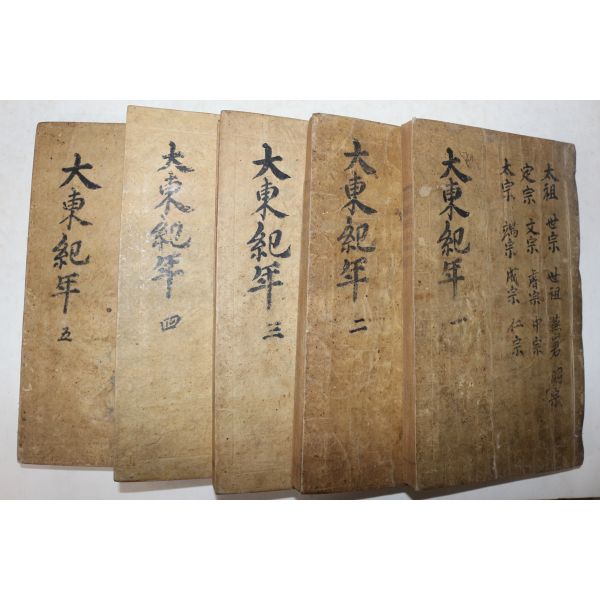 太祖 世宗 世祖 燕君 明宗
定宗 文宗 睿宗 中宗
太宗 端宗 成宗 仁宗
大東紀年 一
大東紀年 二
大東紀年 三
大東紀年 四
大東紀年 五